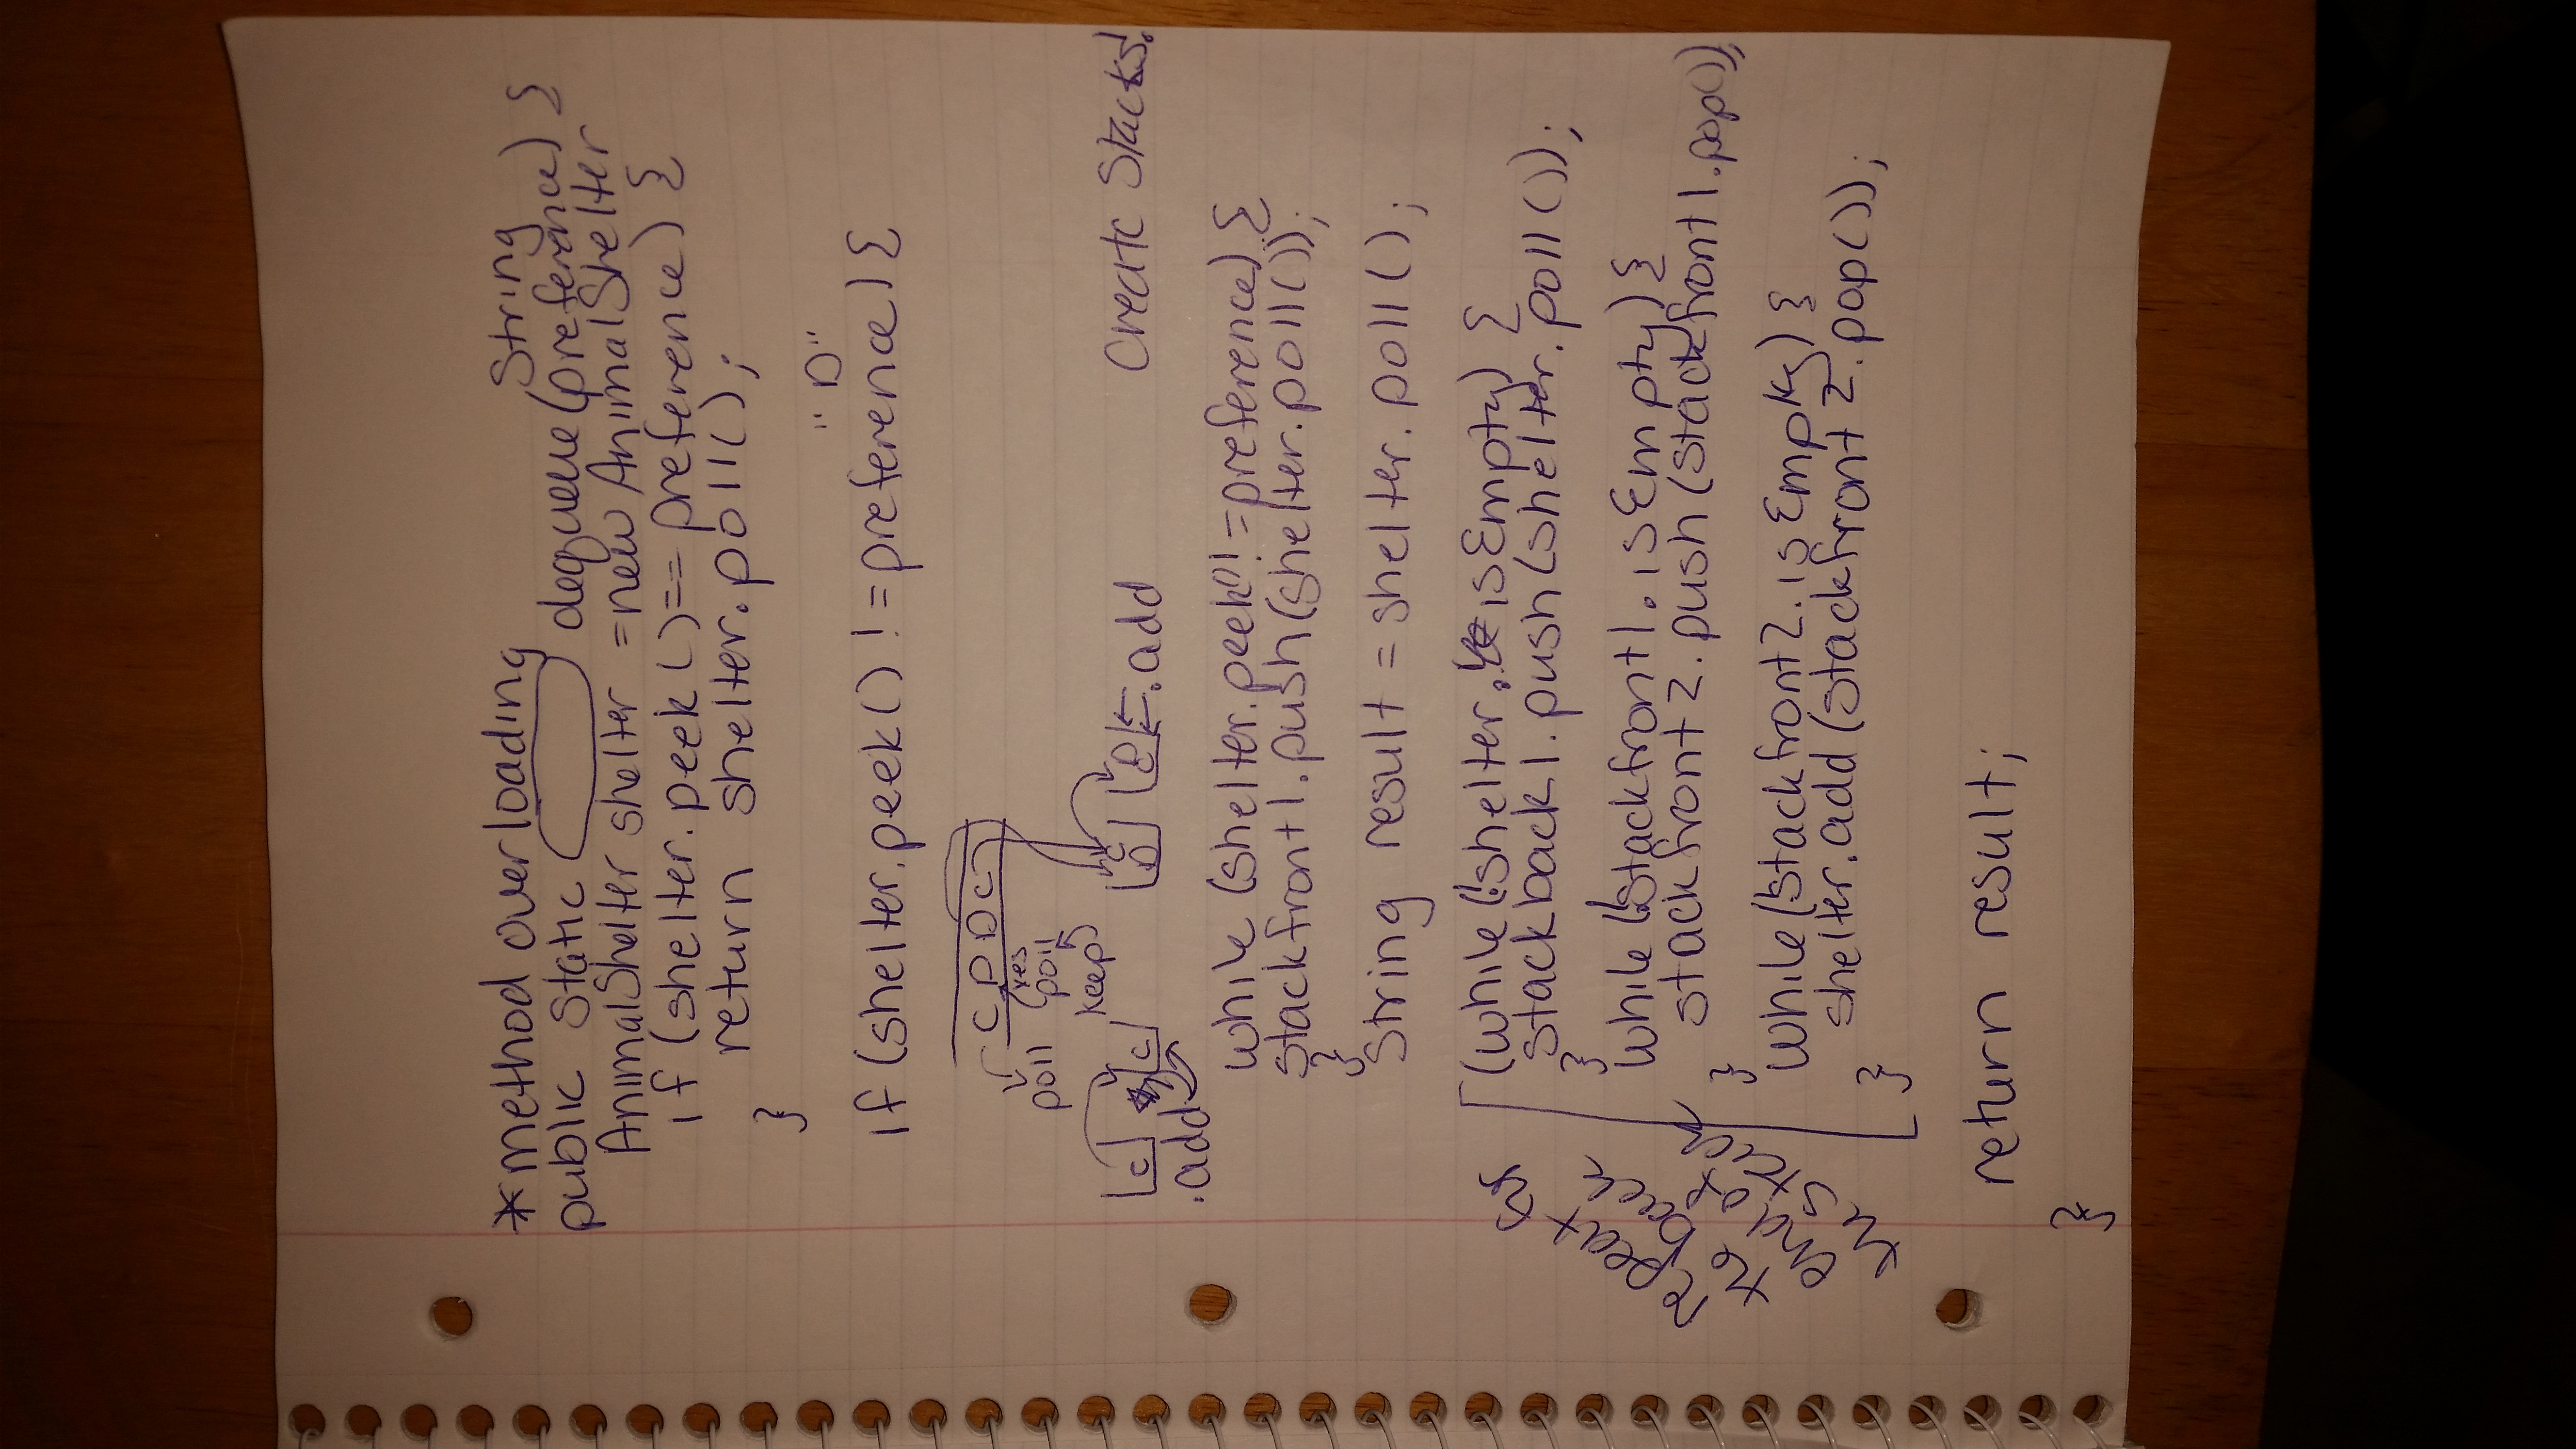 *method overloading
String
public static dequeue(preference) {
AnimalShelter shelter = new AnimalShelter
if (shelter.peek()== preference) {
return shelter.poll();
}
"D"
if (shelter.peek() != preference) {
C D D C
poll
yes
poll
keep
C C
.add
C
D
D
C
.add
Create Stacks!
while (shelter.peek()!=preference) {
stackfront1.push(shelter.poll());
}
String result = shelter.poll();
(while (!shelter.isEmpty) {
stackback1.push(shelter.poll());
}
while (!stackfront1.isEmpty) {
stackfront2.push(stackfront1.pop());
}
while (!stackfront2.isEmpty) {
shelter.add(stackfront2.pop());
}
repeat for
the back
end of
the stack
return result;
}